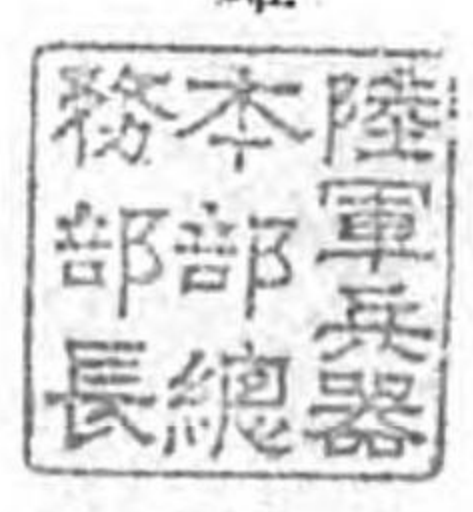 陸軍兵器
本部總
務部長